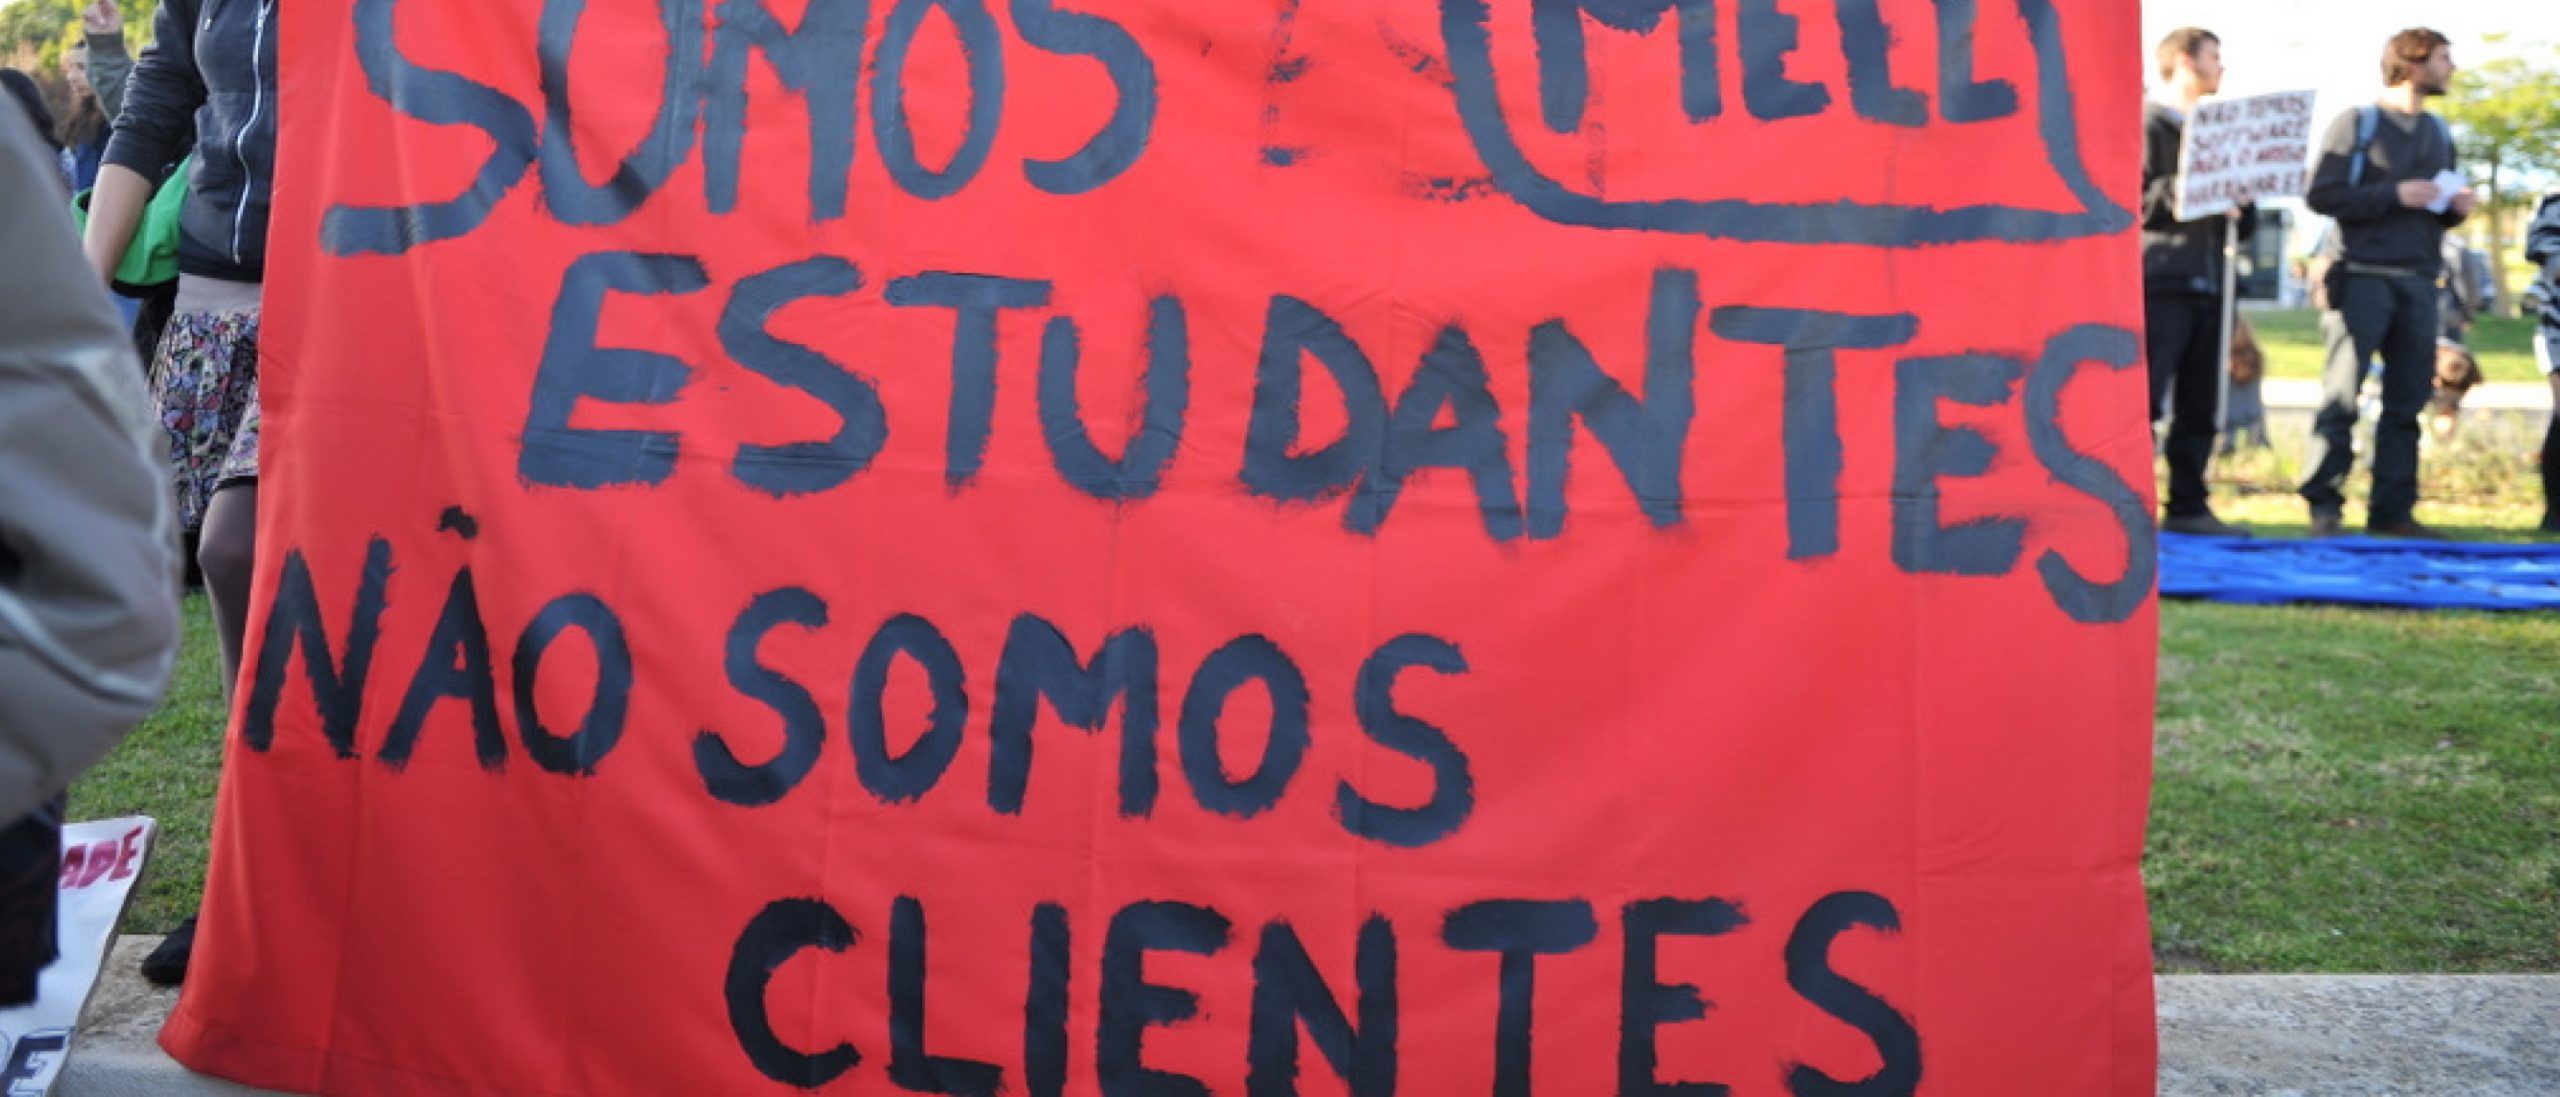 SOMOS
ESTUDANTES
NÃO SOMOS
CLIENTES
NÃO TEMOS
SOFTWARE
PARA O NOSSO
HARDWARE!
ADE